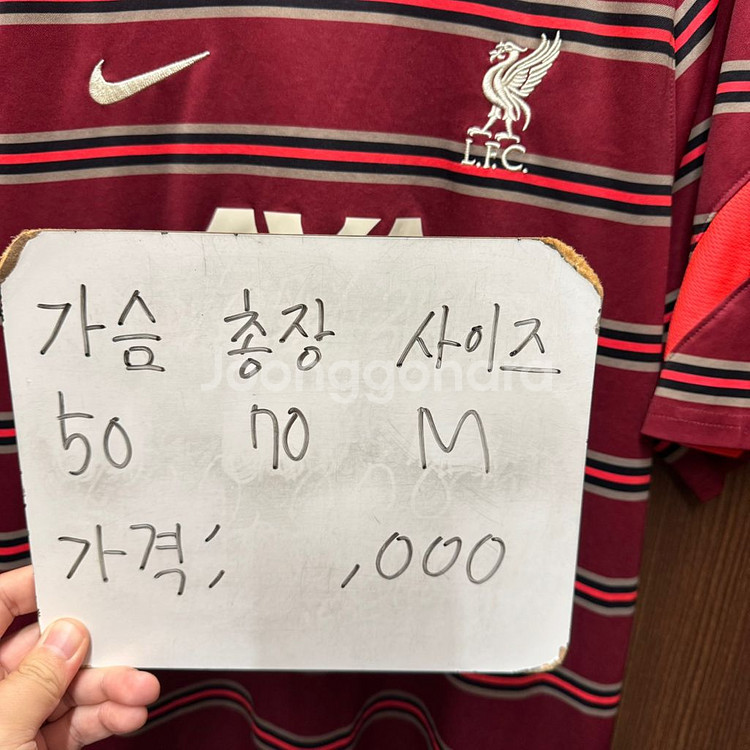 L.F.C.
AXA
가슴 총장 사이즈
Joonggonara
50 70 M
가격; ,000